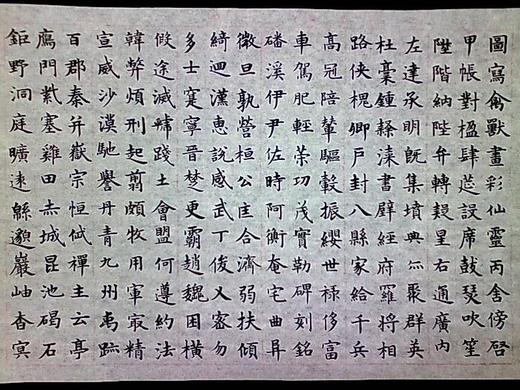 圖寫禽獸畫彩仙靈丙舍傍啓
甲帳對楹肆筵設席鼓瑟吹笙
陞階納陛弁轉疑星右通廣內
左達承明既集墳典亦聚群英
杜稾鍾隸漆書壁經府羅將相
路俠槐卿戶封八縣家給千兵
高冠陪輦驅轂振纓世祿侈富
車駕肥輕策功茂實勒碑刻銘
磻溪伊尹佐時阿衡奄宅曲阜
微旦孰營桓公匡合濟弱扶傾
綺迴漢惠說感武丁俊乂密勿
多士寔寧晉楚更霸趙魏困橫
假途滅虢踐土會盟何遵約法
韓弊煩刑起翦頗牧用軍冣精
宣威沙漠馳譽丹青九州禹跡
百郡秦并嶽宗恒岱禪主云亭
鴈門紫塞雞田赤城昆池碣石
鉅野洞庭曠遠緜邈巖岫杳冥